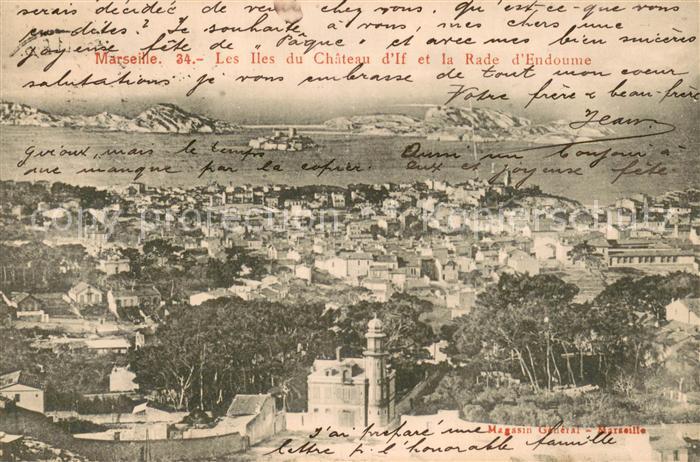 serais décidée de venir chez vous. Qu'est-ce-que vous
en dites? Je souhaite à vous mes chers une
joyeuse fête de "Pâque" et avec mes bien sincères
Marseille. 34.- Les Iles du Château d'If et la Rade d'Endoume
salutations, je vous embrasse de tout mon coeur
Votre frère & beau-frère
Jean.
mais le temps
me manque par la copier.
un toujours à
eux et joyeuse fête
copyright protection
Magasin Général - Marseille
J'ai preparé une
lettre p. l'honorable famille